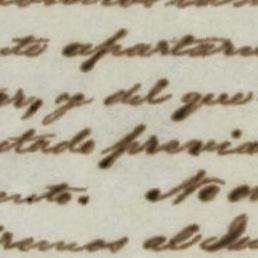 nte apartarn
or, y del que
ntado previa
ento. No o
iremos al Ju